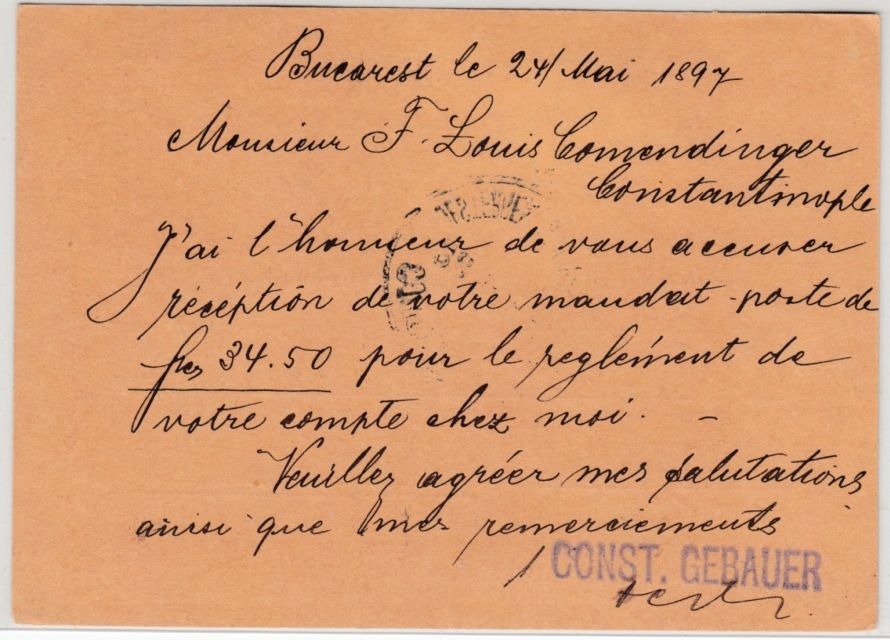 Bucarest le 24/ Mai 1897
Monsieur F. Louis Comendinger
Constantinople
J'ai l'honneur de vous accuser
récéption de votre mandat-poste de
frcs 34.50 pour le reglement de
votre compte chez moi. –
Veuillez agréer mes salutations
ainsi que mes remerciements
CONST. GEBAUER